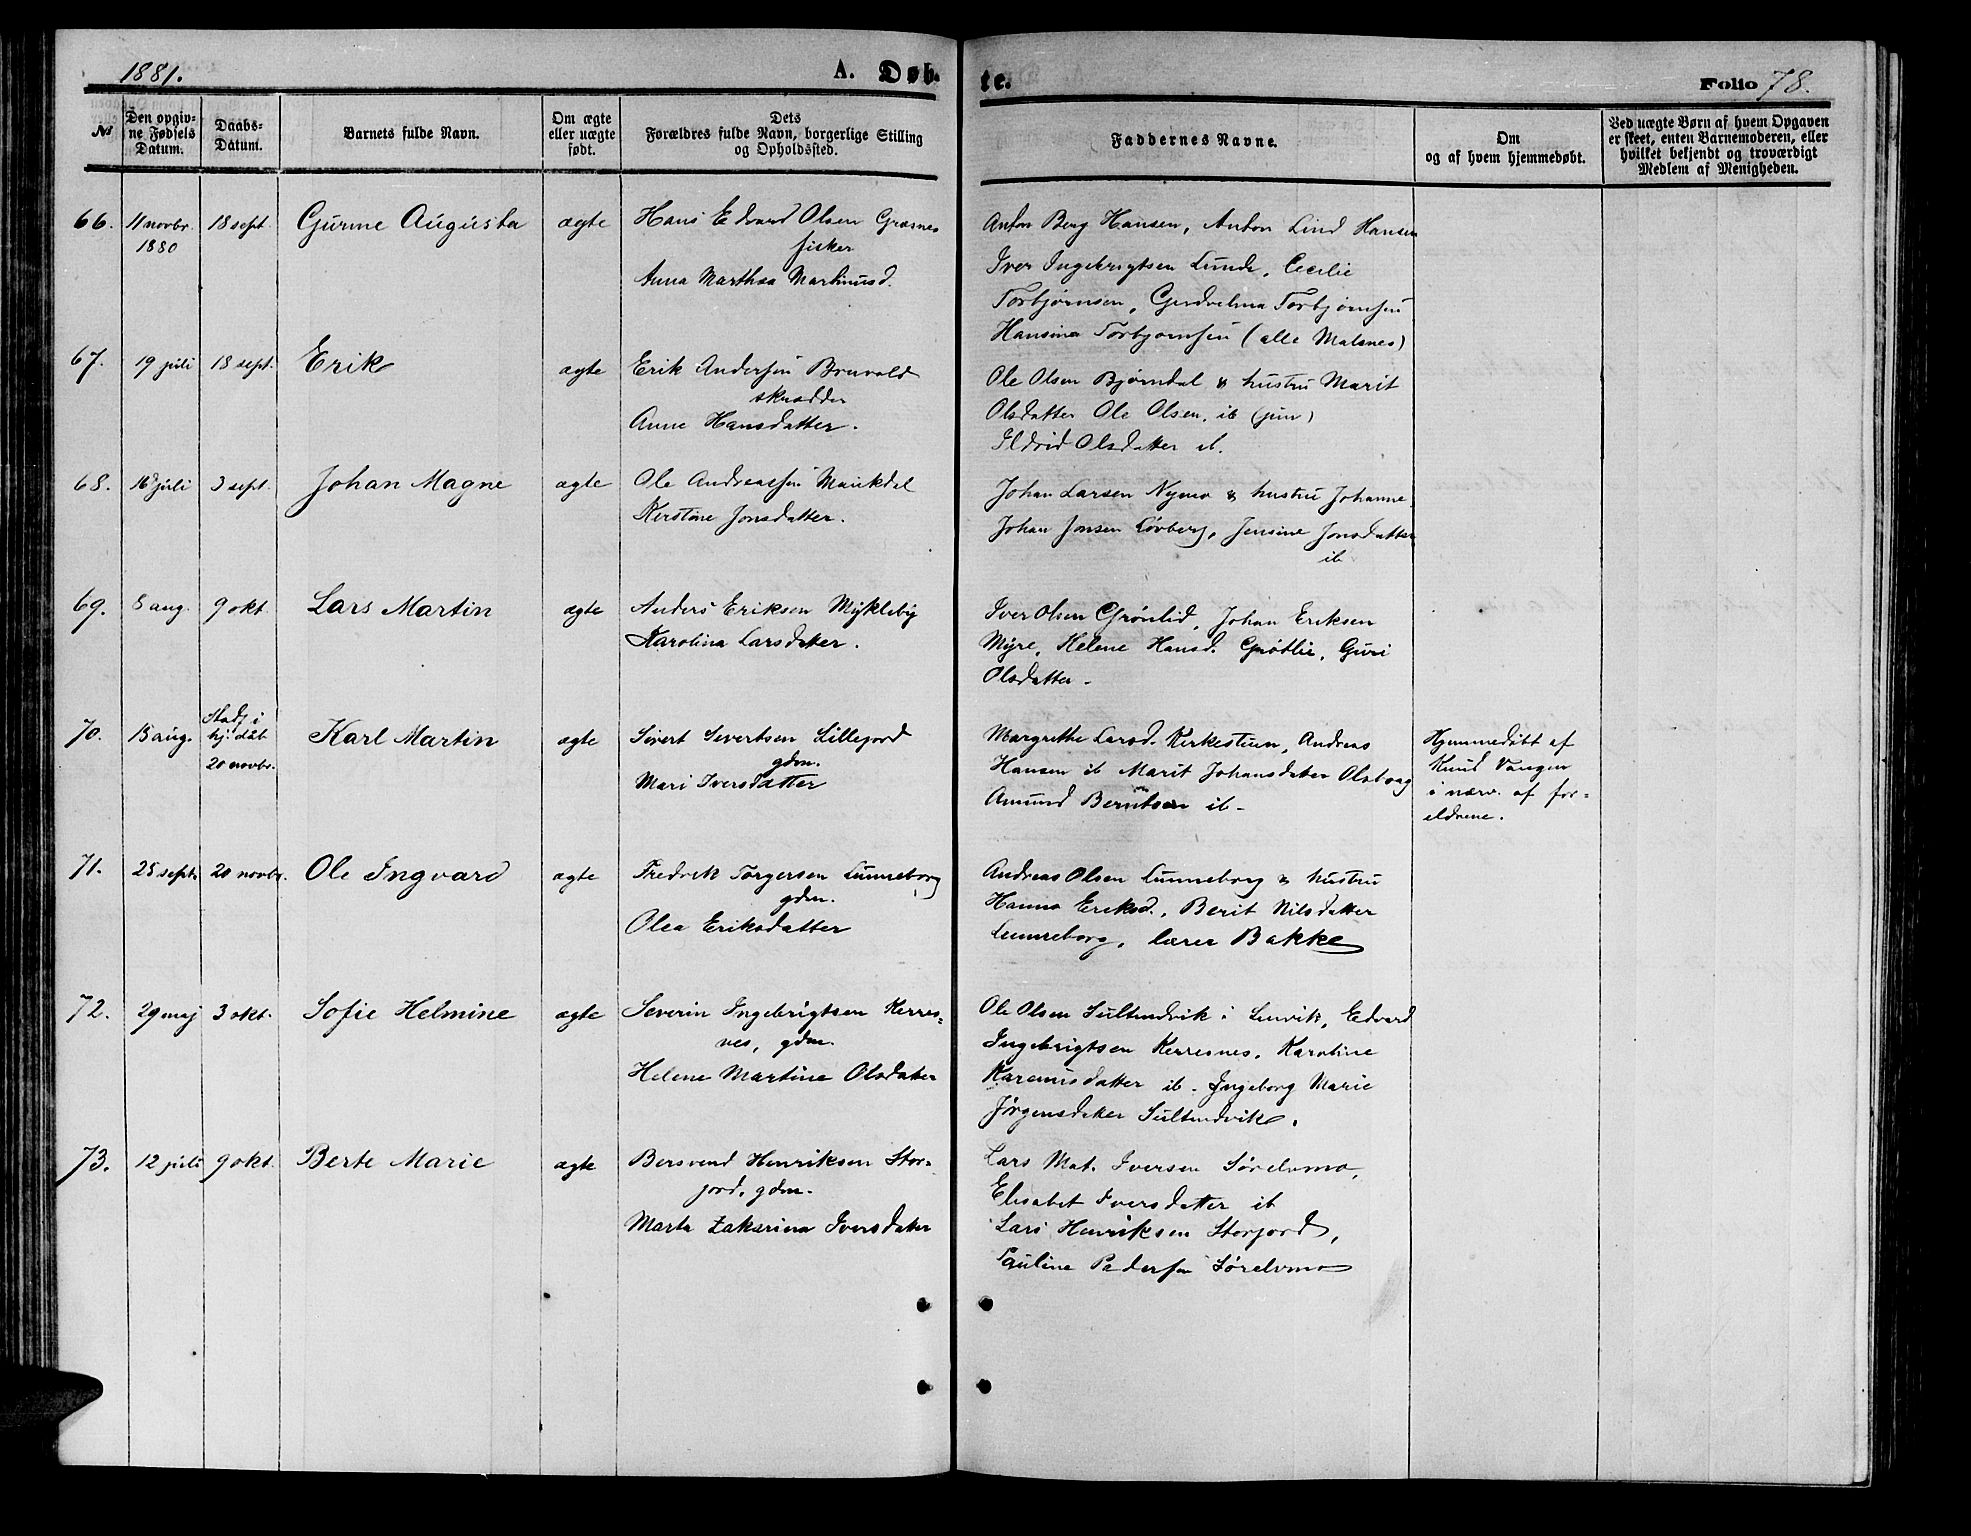 1881. A. Døb- te. Folio 78.
No
Den opgiv-
ne Fødsels
Datum.
Daabs-
Datum.
Barnets fulde Navn.
Om ægte
eller uægte
født.
Dets
Forældres fulde Navn, borgerlige Stilling
og Opholdssted.
Faddernes Navne.
Om
og af hvem hjemmedøbt.
Ved uægte Børn af hvem Opgaven
er skeet, enten Barnemoderen, eller
hvilket bekjendt og troværdigt
Medlem af Menigheden.
66. 11 novbr. 18 sept. Augusta ægte Hans Edvard Olsen Græsnes
1880 fisker
Anna Marthea Martinusd.
Anton Berg Hansen, Anton Lind Hansen
Iver Ingebrigtsen Lunde, Cecilie
Torbjørnsen, Torbjørnsen
Hansine Torbjørnsen (alle Malsnes)
67. 19 juli 18 sept. Erik ægte Erik Andersen Bruvold
skrædder
Anne Hansdatter.
Ole Olsen Bjørndal & hustru Marit
Olsdatter Ole Olsen, ib (jun)
Ildrid Olsdatter ib.
68. 16 juli 3 sept. Johan Magne ægte Ole Andreassen Maukdal
Kirstine Jonsdatter.
Johan Larsen Nymo & hustru Johanne
Johan Jonsen Løvberg, Jensine Jonsdatter
ib
69. 8 aug. 9 okt. Lars Martin ægte Anders Eriksen Mykleby
Karolina Larsdatter.
Iver Olsen Grønlid, Johan Eriksen
Myre, Helene Hansd. Grøtlie, Guri
Olsdatter.
70. 15 aug. Stadf i
hj. dåb
20 novbr. Karl Martin ægte Sivert Sivertsen Lillefjord
gdm.
Mari Iversdatter
Margrethe Larsd. Kirkestuen, Andreas
Hansen ib Marit Johansdatter Olsborg
Amund Berntsen ib.
Hjemmedøbt af
Knud Vangen
i nærv. af for-
eldrene.
71. 25 sept. 20 novbr. Ole Ingvard ægte Fredrik Torgersen Lunneborg
gdm.
Olea Eriksdatter
Andreas Olsen Lunneborg & hustru
Hanna Eriksd., Berit Nilsdatter
Lunneborg, lærer Bakke
72. 29 maj 3 okt. Sofie Helmine ægte Severin Ingebrigtsen Kerres-
nes, gdm.
Helene Martine Olsdatter
Ole Olsen Sultindvik i Lenvik, Edvard
Ingebrigtsen Kerresnes, Karoline
Kareniusdatter ib. Ingeborg Marie
Jørgensdatter Sultindvik.
73. 12 juli 9 okt. Berte Marie ægte Bersvend Henriksen Stor-
fjord, gdm.
Marta Zakarina Iversdatter
Lars Mat. Iversen Sørelvmo,
Elisabet Iversdatter ib
Lars Henriksen Storfjord,
Pauline Pedersen Sørelvmo